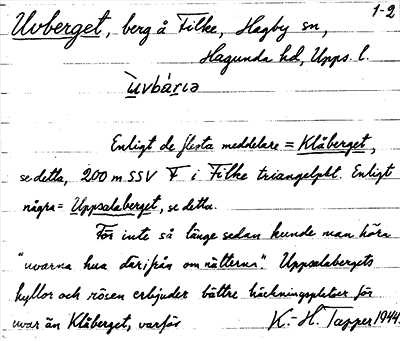 1-2
Uvberget, berg å Filke, Hagby sn,
Hagunda hd, Upps. l.
ùvbárιə
Enligt de flesta meddelare = Klåberget,
se detta, 200 m SSV F i Filke triangelpkt. Enligt
några = Uppsalaberget, se detta.
För inte så länge sedan kunde man höra
"uvarna hua därifrån om nätterna". Uppsalabergets
hyllor och rösen erbjuder bättre häckningsplatser för
uvar än Klåberget, varför K.-H. Tapper 1944.